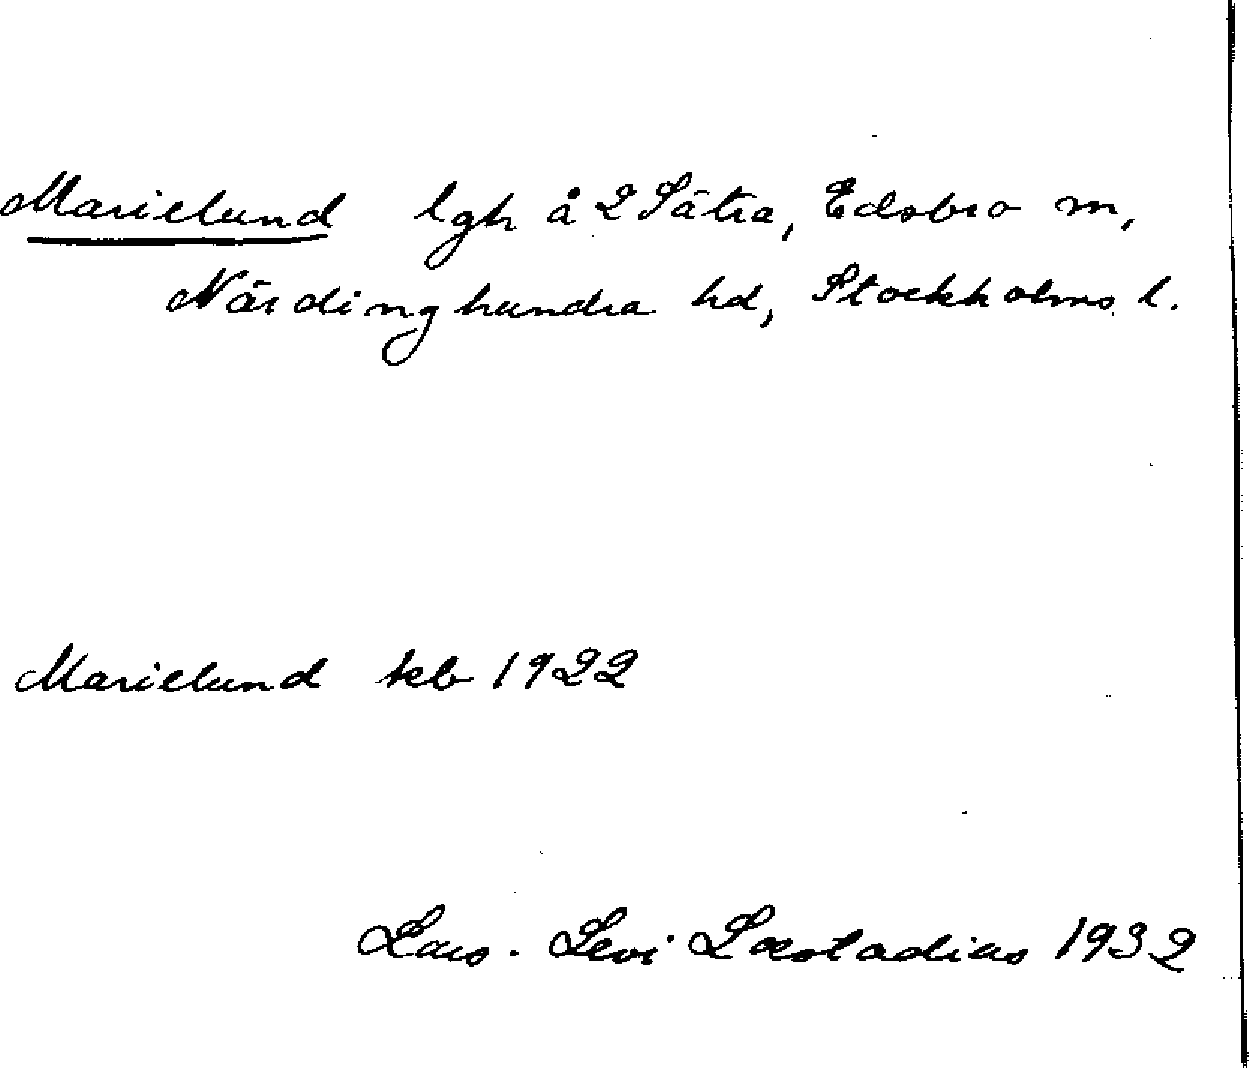 Marielund lgh å 2 Sätra, Edsbro sn,
Närdinghundra hd, Stockholms l.
Marielund kb 1922
Lars-Levi Læstadius 1932